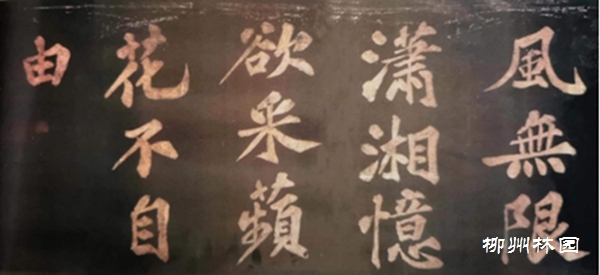 風無限
潇湘憶
欲采蘋
花不自
由
柳州林园